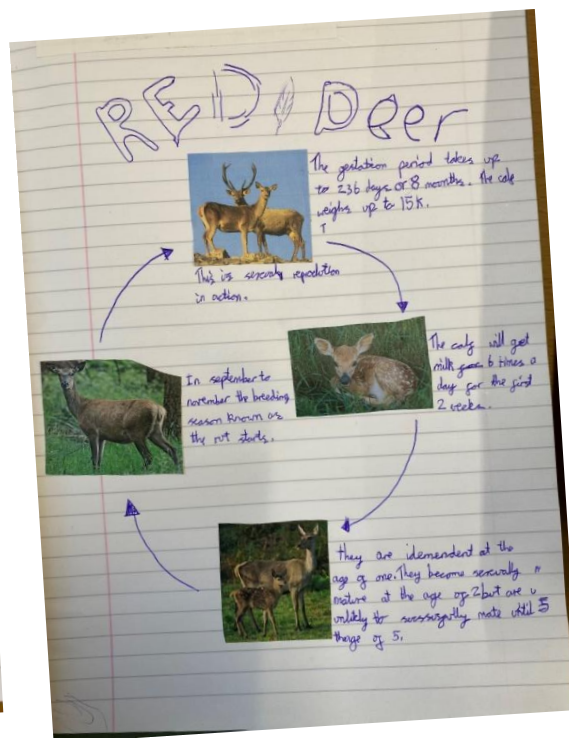 RED Deer
The gestation period takes up
to 236 days or 8 moonths. The calf
weighs up to 15k.
T
This is sexcualy reprodution
in action.
The calf will get
milk 6 times a
day for the first
2 weeks.
In september to
november the breeding
season known as
the rut starts.
they are idemendent at the
age of one. They become sexcually
mature at the age of 2 but are u
unlikly to sucssesfully mate until 5
the age of 5.